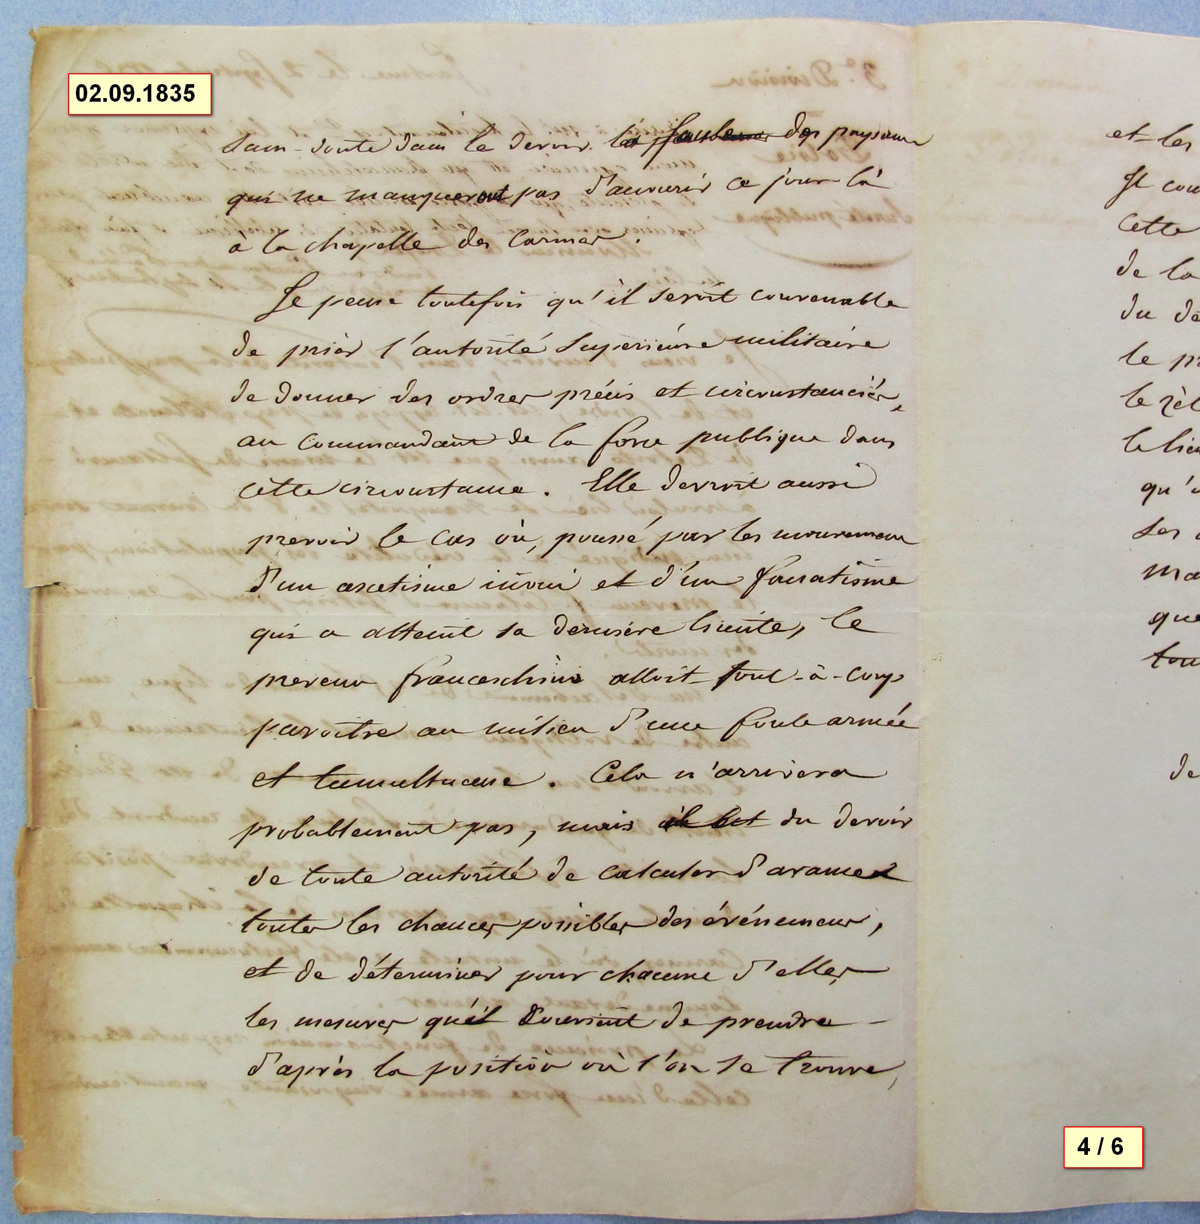 02.09.1835
sans-doute dans le devoir les des paysans
qui ne manqueront pas d'accourir ce jour-là
à la chapelle des Carmes.
Je pense toutefois qu'il seroit convenable
de prier l'autorité supérieure militaire
de donner des ordres précis et circonstanciés,
au commandant de la force publique dans
cette circonstance. Elle devroit aussi
prévoir le cas où, poussé par les mouvemens
d'un ascetisme inoui et d'un fanatisme
qui a atteint sa dernière limite, le
preveux franceschini alloit tout-à-coup
paroître au milieu d'une foule armée
et tumultueuse. Cela n'arrivera
probablement pas, mais il est du devoir
de toute autorité de calculer d'avance
toutes les chances possibles des événemens,
et de déterminer pour chacune d'elles
les mesures qu'il convient de prendre
d'après la position où l'on se trouve,
et les
Il cou
cette
de la
du dé
le pr
le zèl
le lieu
qu'
ses
ma
que
tou
de
4 / 6